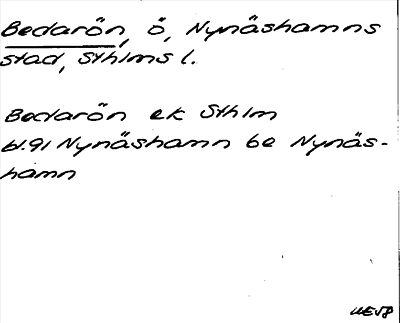 Bedarön, ö, Nynäshamns
stad, Sthlms l.
Bedarön ek Sthlm
bl.91 Nynäshamn be Nynäs-
hamn